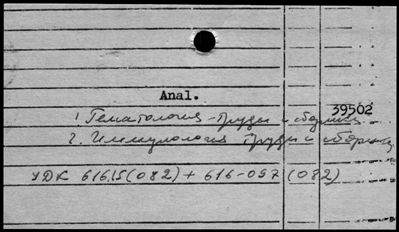 Anal.
39502
1. Гематология - Труды и сборники
2. Иммунология Труды и сборники
УДК 616.15(082) + 616-097(082)